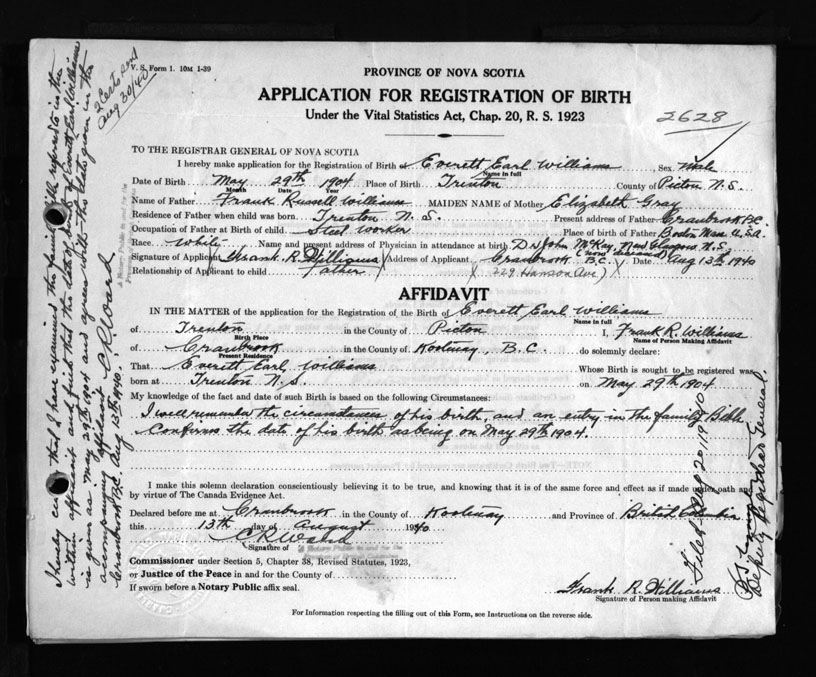 V. S. Form 1. 10M 1-39
2 Certs sent
Aug 30/40
PROVINCE OF NOVA SCOTIA
APPLICATION FOR REGISTRATION OF BIRTH
Under the Vital Statistics Act, Chap. 20, R. S. 1923
2628
TO THE REGISTRAR GENERAL OF NOVA SCOTIA
I hereby make application for the Registration of Birth of Everett Earl Williams Sex Male
Name in full
Date of Birth May 29th 1904 Place of Birth Trenton County of Pictou N.S.
Month Date Year
Name of Father Frank Russell Williams MAIDEN NAME of Mother Elizabeth Gray
Residence of Father when child was born Trenton N.S. Present address of Father Cranbrook B.C.
Occupation of Father at Birth of child Steel Worker Place of birth of Father Boston Mass U.S.A.
Race White Name and present address of Physician in attendance at birth Dr John McKay, New Glasgow N.S.
(now deceased)
Signature of Applicant Frank R. Williams Address of Applicant Cranbrook B.C. Date Aug 13th 1940
Relationship of Applicant to child Father (229 Hanson Ave)
AFFIDAVIT
IN THE MATTER of the application for the Registration of the Birth of Everett Earl Williams
Name in full
of Trenton in the County of Pictou I, Frank R. Williams
Birth Place Name of Person Making Affidavit
of Cranbrook in the County of Kootenay, B.C. do solemnly declare:
Present Residence
That Everett Earl Williams Whose Birth is sought to be registered was
born at Trenton N.S. on May 29th 1904
My knowledge of the fact and date of such Birth is Based on the following Circumstances:
I well remember the circumstances of his birth, and an entry in the family Bible
confirms the date of his birth as being on May 29th 1904.
I make this solemn declaration conscientiously believing it to be true, and knowing it is of the same force and effect as if made under oath and
by virtue of The Canada Evidence Act.
Declared before me at Cranbrook in the County of Kootenay and Province of British Columbia
this 13th day of August 1940
C R Ward
Signature of
Commissioner under Section 5, Chapter 38, Revised Statutes, 1923,
or Justice of the Peace in and for the County of
If sworn before a Notary Public affix seal.
Frank R. Williams
Signature of Person making Affidavit
For Information respecting the filling out of this Form, see Instructions on the reverse side.
I hereby certify that I have examined the family Bible referred to in the
within affidavit and find that the date of birth of Everett Earl Williams
is given as May 29th 1904 and agrees with the date given in the
accompanying affidavit. C R Ward
Cranbrook B.C. Aug 13th 1940.
Filed Aug 20 1940
Deputy Registrar General.